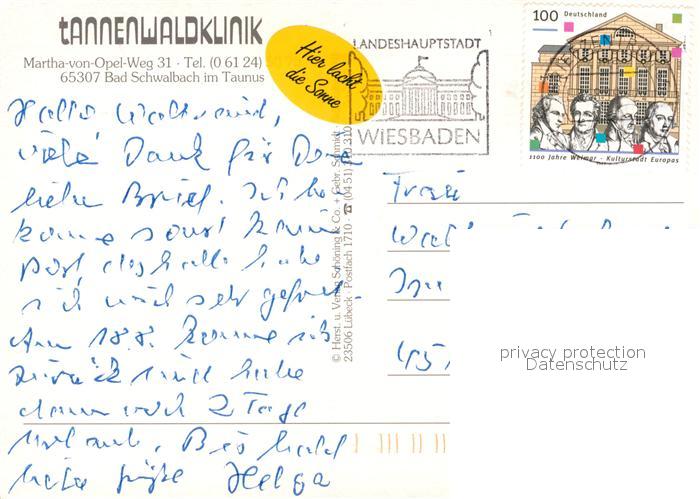 TANNENWALDKLINIK
Martha-von-Opel-Weg 31 · Tel. (0 61 24)
65307 Bad Schwalbach im Taunus
Hier lacht
die Sonne
LANDESHAUPTSTADT
WIESBADEN
100 Deutschland
1100 Jahre Weimar - Kulturstadt Europas
© Herst. u. Verlag Schöning & Co. + Gebr. Schmidt
23506 Lübeck · Postfach 1710 ☎ (04 51)
Hallo
viele Dank für
liebe Brief. Ich
sonst
Post, deshalb habe
ich mich sehr
Am 18.8. komme ich
zurück und habe
dann noch 2 Tage
Urlaub. Bis bald
liebe Grüße Helga
Frau
45
privacy protection
Datenschutz